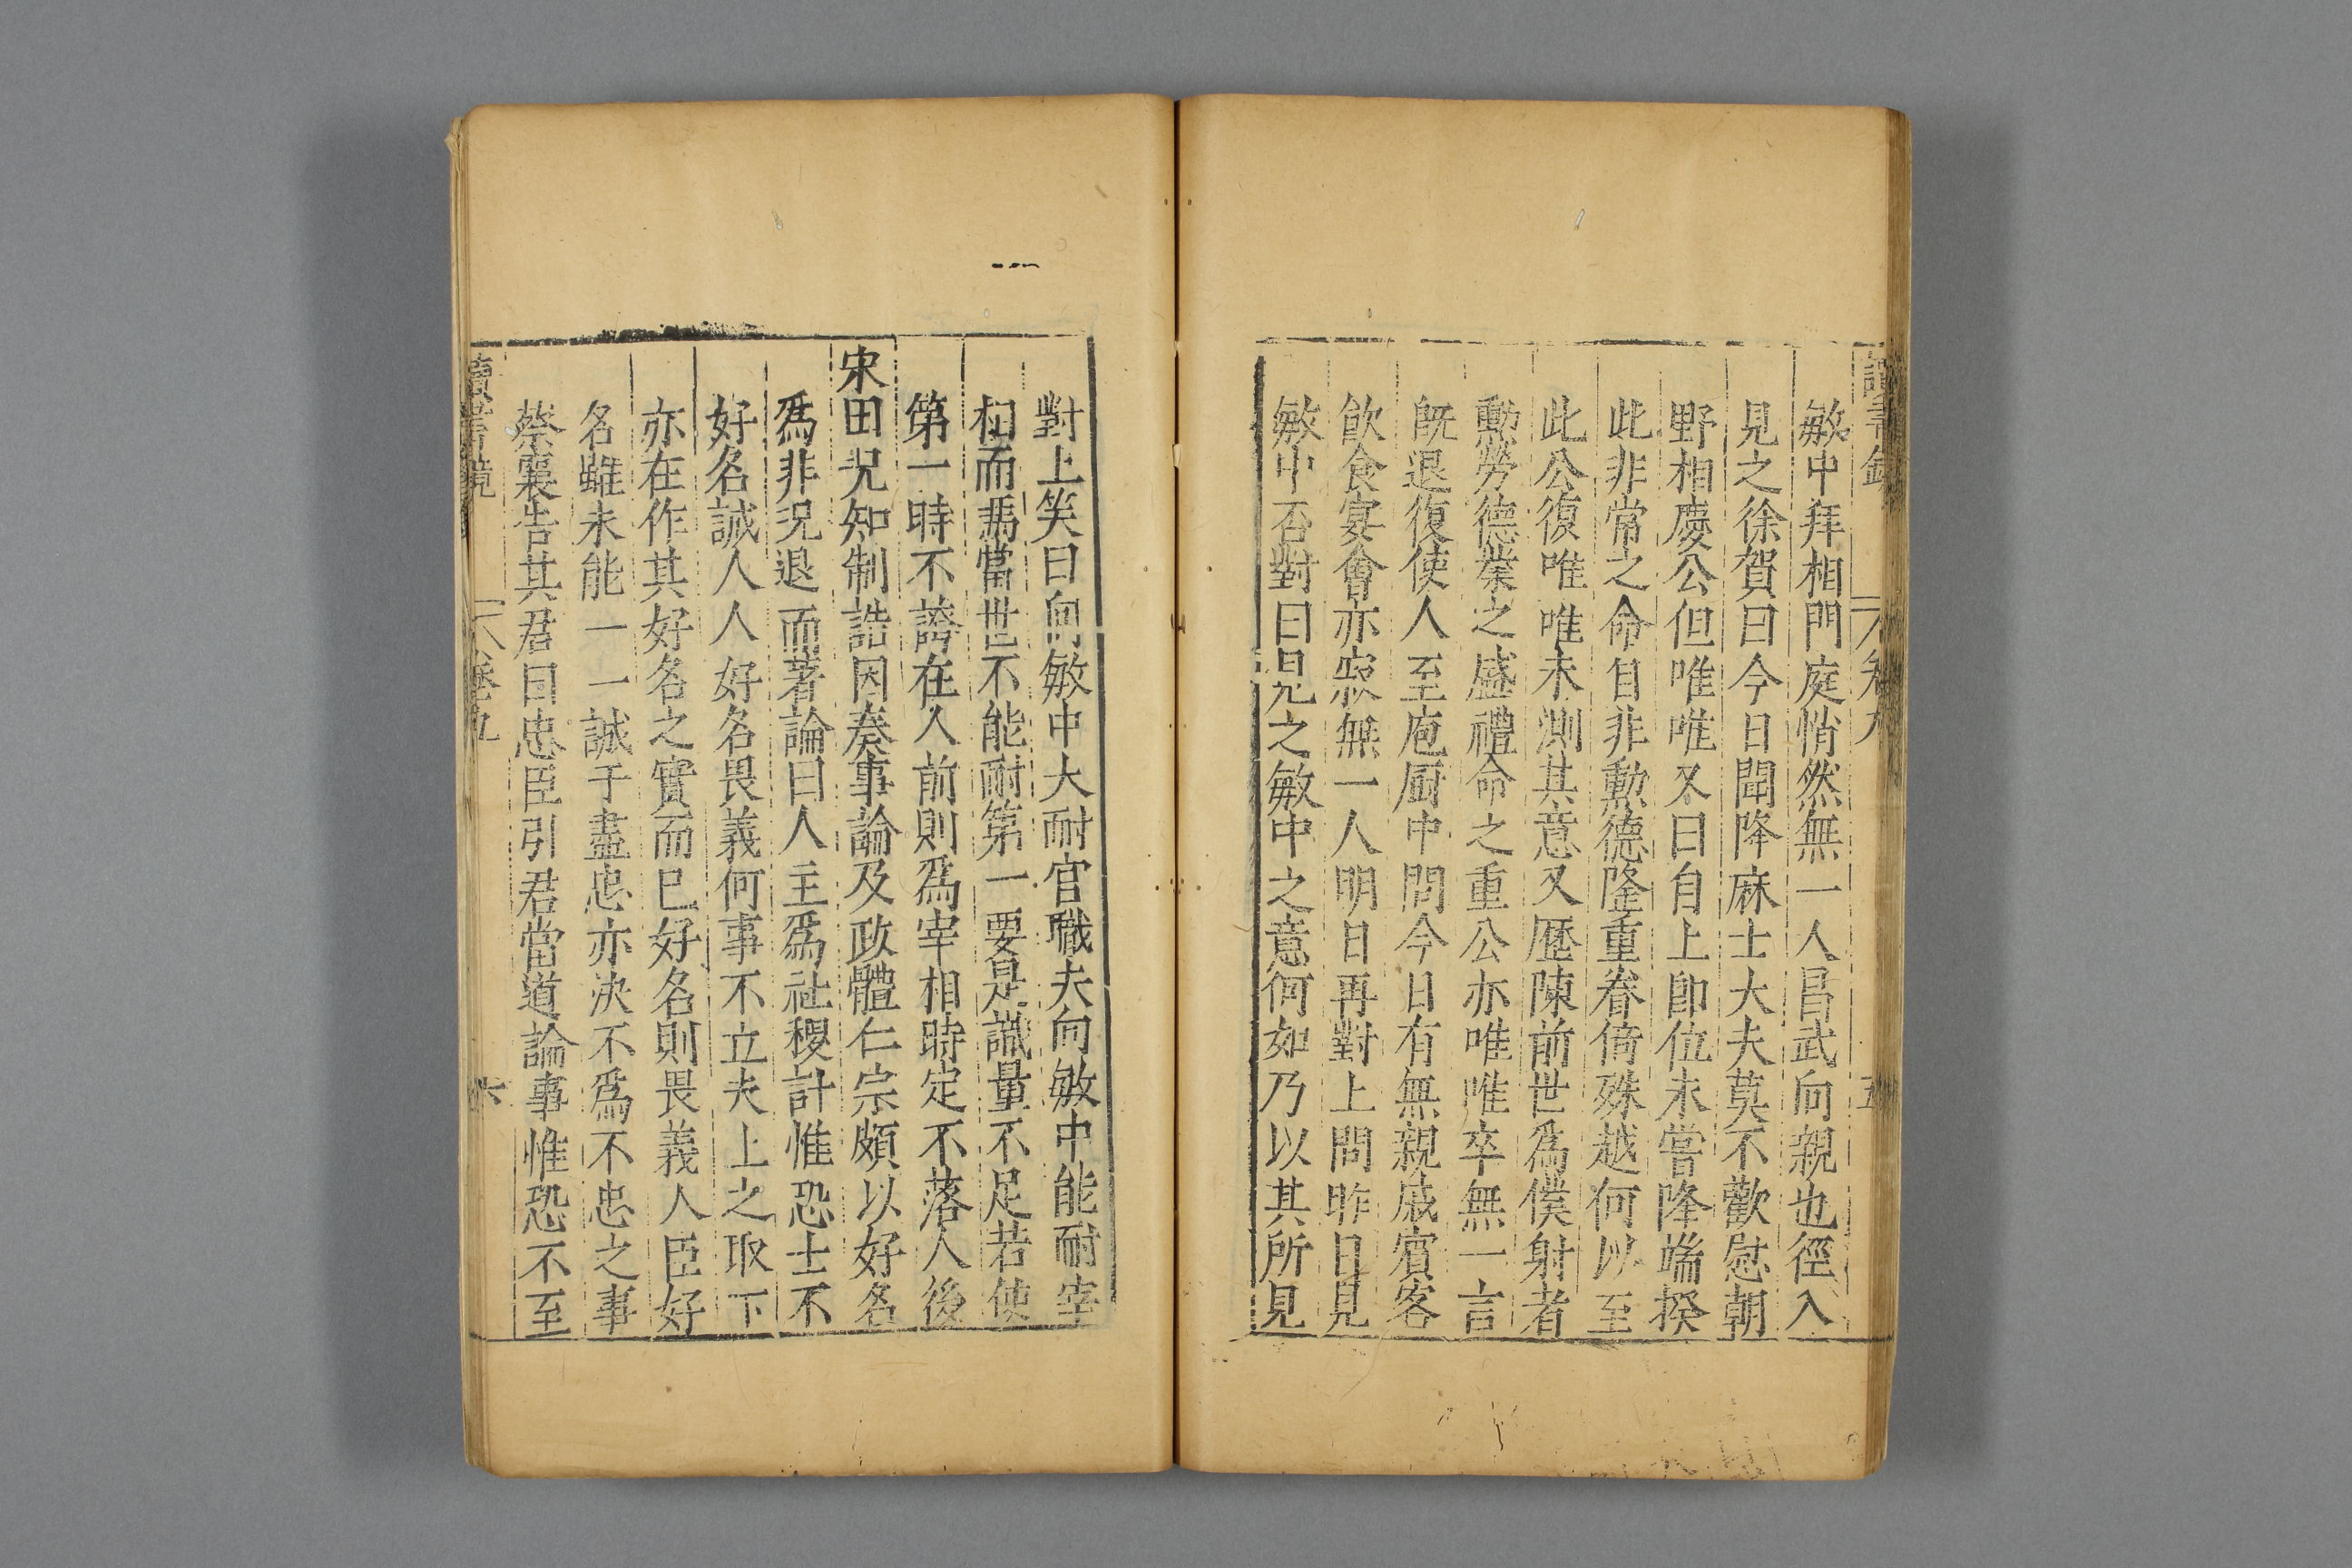 敏中拜相門庭悄然無一人昌武向親也徑入
見之徐賀曰今日聞降麻士大夫莫不歡慰朝
野相慶公但唯唯又曰自上卽位未嘗降端揆
此非常之命自非勳德隆重眷倚殊越何以至
此公復唯唯未測其意又歷陳前世爲僕射者
勳勞德業之盛禮命之重公亦唯唯卒無一言
旣退復使人至庖厨中問今日有無親戚賓客
飲食宴會亦寂無一人明日再對上問昨日見
敏中否對曰見之敏中之意何如乃以其所見
對上笑曰向敏中大耐官職夫向敏中能耐宰
相而馮當世不能耐第一要是識量不足若使
第一時不誇在人前則爲宰相時定不落人後
宋田況知制誥因奏事論及政體仁宗頗以好名
爲非況退而著論曰人主爲社稷計惟恐士不
好名誠人人好名畏義何事不立夫上之取下
亦在作其好名之實而已好名則畏義人臣好
名雖未能一一誠于盡忠亦決不爲不忠之事
蔡襄告其君曰忠臣引君當道論事惟恐不至
讀書鏡 卷九 六